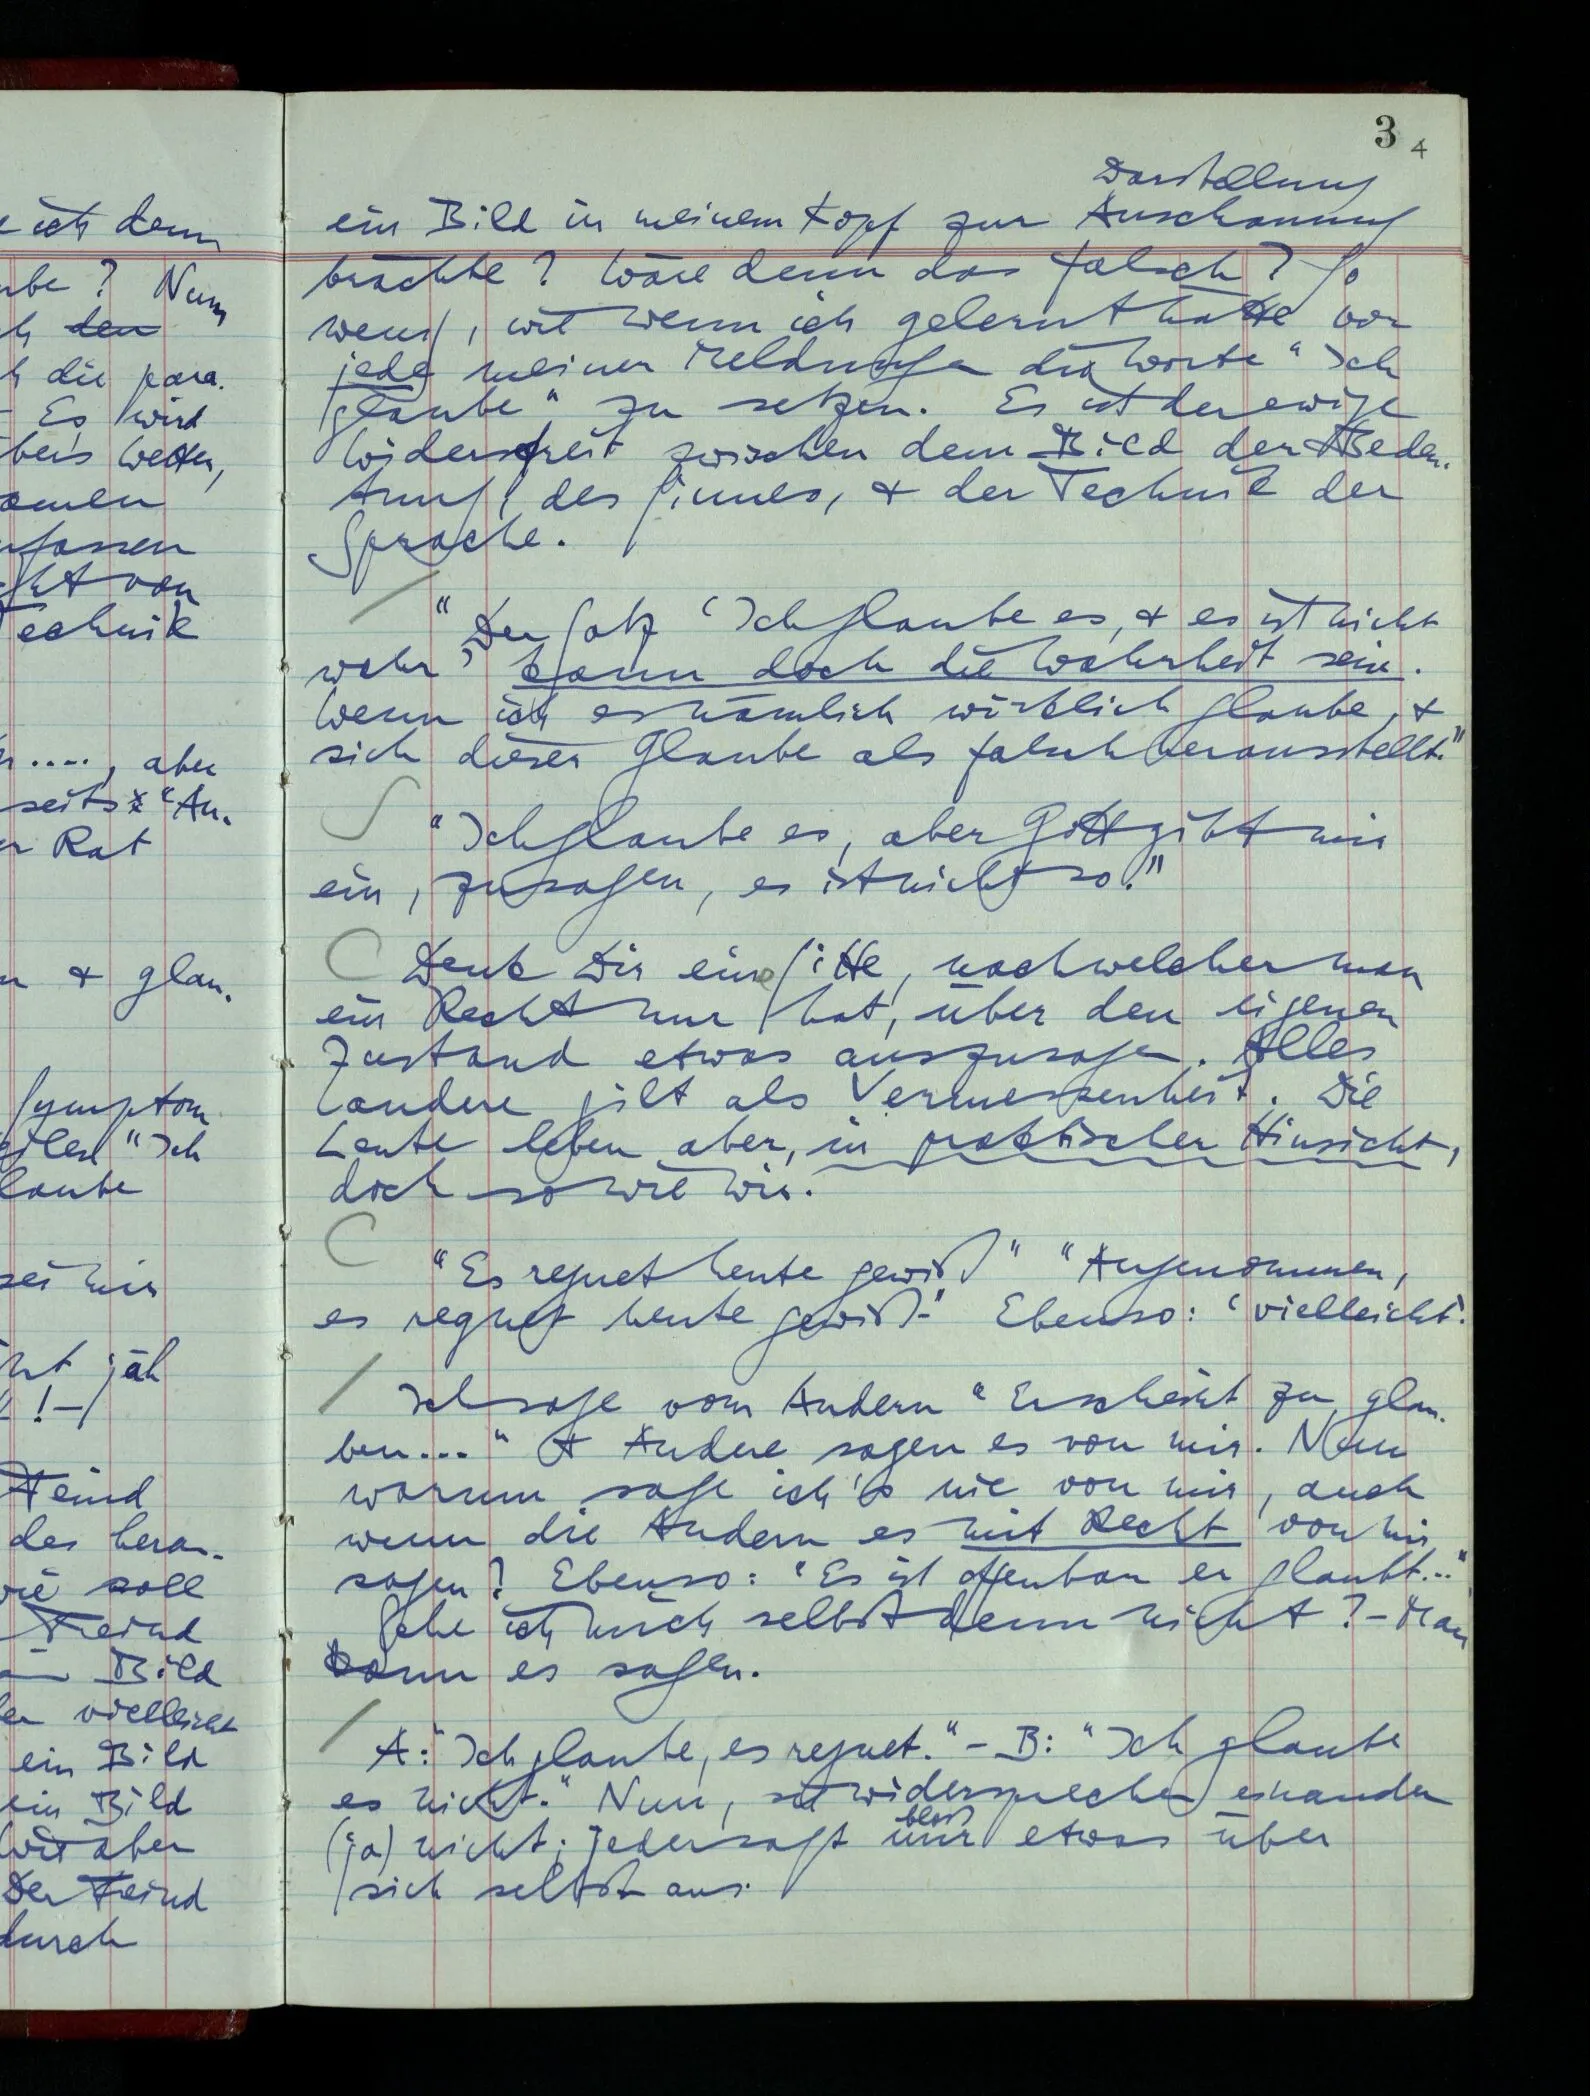 3 4
e ich denn
be? Nun
h den
h die para-
- Es wird
Wetter,
nfassen
ht von
Technik
...., aber
seits: "An-
n Rat
n & glau-
Symptom
"Ich
laube
sei mir
jäh
!-
Feind
des heran-
wie soll
Feind
Bild
er vielleicht
ein Bild
ein Bild
Wir aber
Der Feind
durch
Darstellung
ein Bild in meinem Kopf zur Anschauung
brächte? Wäre denn das falsch? So
wenig, wie wenn ich gelernt hätte vor
jede meiner Meldungen die Worte "Ich
glaube" zu setzen. Es ist der ewige
Widerstreit zwischen dem Bild der Bedeu-
tung, des Sinnes, & der Technik der
Sprache.
"Der Satz 'Ich glaube es, & es ist nicht
wahr' kann doch die Wahrheit sein.
Wenn ich es nämlich wirklich glaube, &
sich dieser Glaube als falsch herausstellt."
"Ich glaube es, aber Gott gibt mir
ein, zu sagen, es ist nicht so."
Denk Dir eine Sitte, nach welcher man
ein Recht nur hat, über den eigenen
Zustand etwas auszusagen. Alles
andere gilt als Vermessenheit. Die
Leute leben aber, in praktischer Hinsicht,
doch so wie wir.
"Es regnet heute gewiß" "Angenommen,
es regnet heute gewiß-" Ebenso: 'vielleicht'.
Ich sage vom Andern "Er scheint zu glau-
ben..." & Andere sagen es von mir. Nun
warum sage ich's nie von mir, auch
wenn die Andern es mit Recht von mir
sagen? Ebenso: "Es ist offenbar er glaubt..."
Sehe ich mich selbst denn nicht? - Man
kann es sagen.
A: "Ich glaube, es regnet." - B: "Ich glaube
es nicht." Nun, sie widersprechen einander
bloß
(ja) nicht; jeder sagt nur etwas über
sich selbst aus.